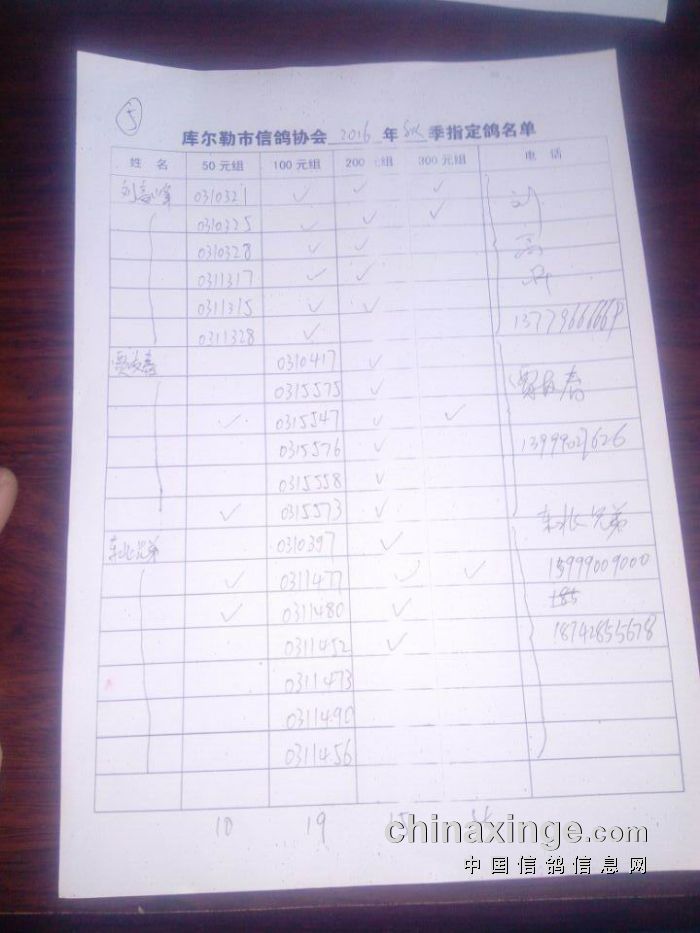 5
库尔勒市信鸽协会 2016 年 秋 季指定鸽名单
姓 名 50元组 100元组 200元组 300元组 电 话
0310321 ✓ ✓ ✓ 刘
0310325 ✓ ✓ ✓
0310328 ✓ ✓
0311317 ✓ ✓
0311315 ✓ ✓
0311328 ✓
0310417 ✓
0315575 ✓
✓ 0315547 ✓ ✓
0315576 ✓
0315558 ✓
✓ 0315573 ✓
东北兄弟 0310397 ✓ 东北兄弟
✓ 0311477 ✓ ✓ 13999009000
✓ 0311480 ✓ 185
0311452 ✓ 18742855678
0311473
0311490
0311456
18 19
chinaxinge.com
中国信鸽信息网